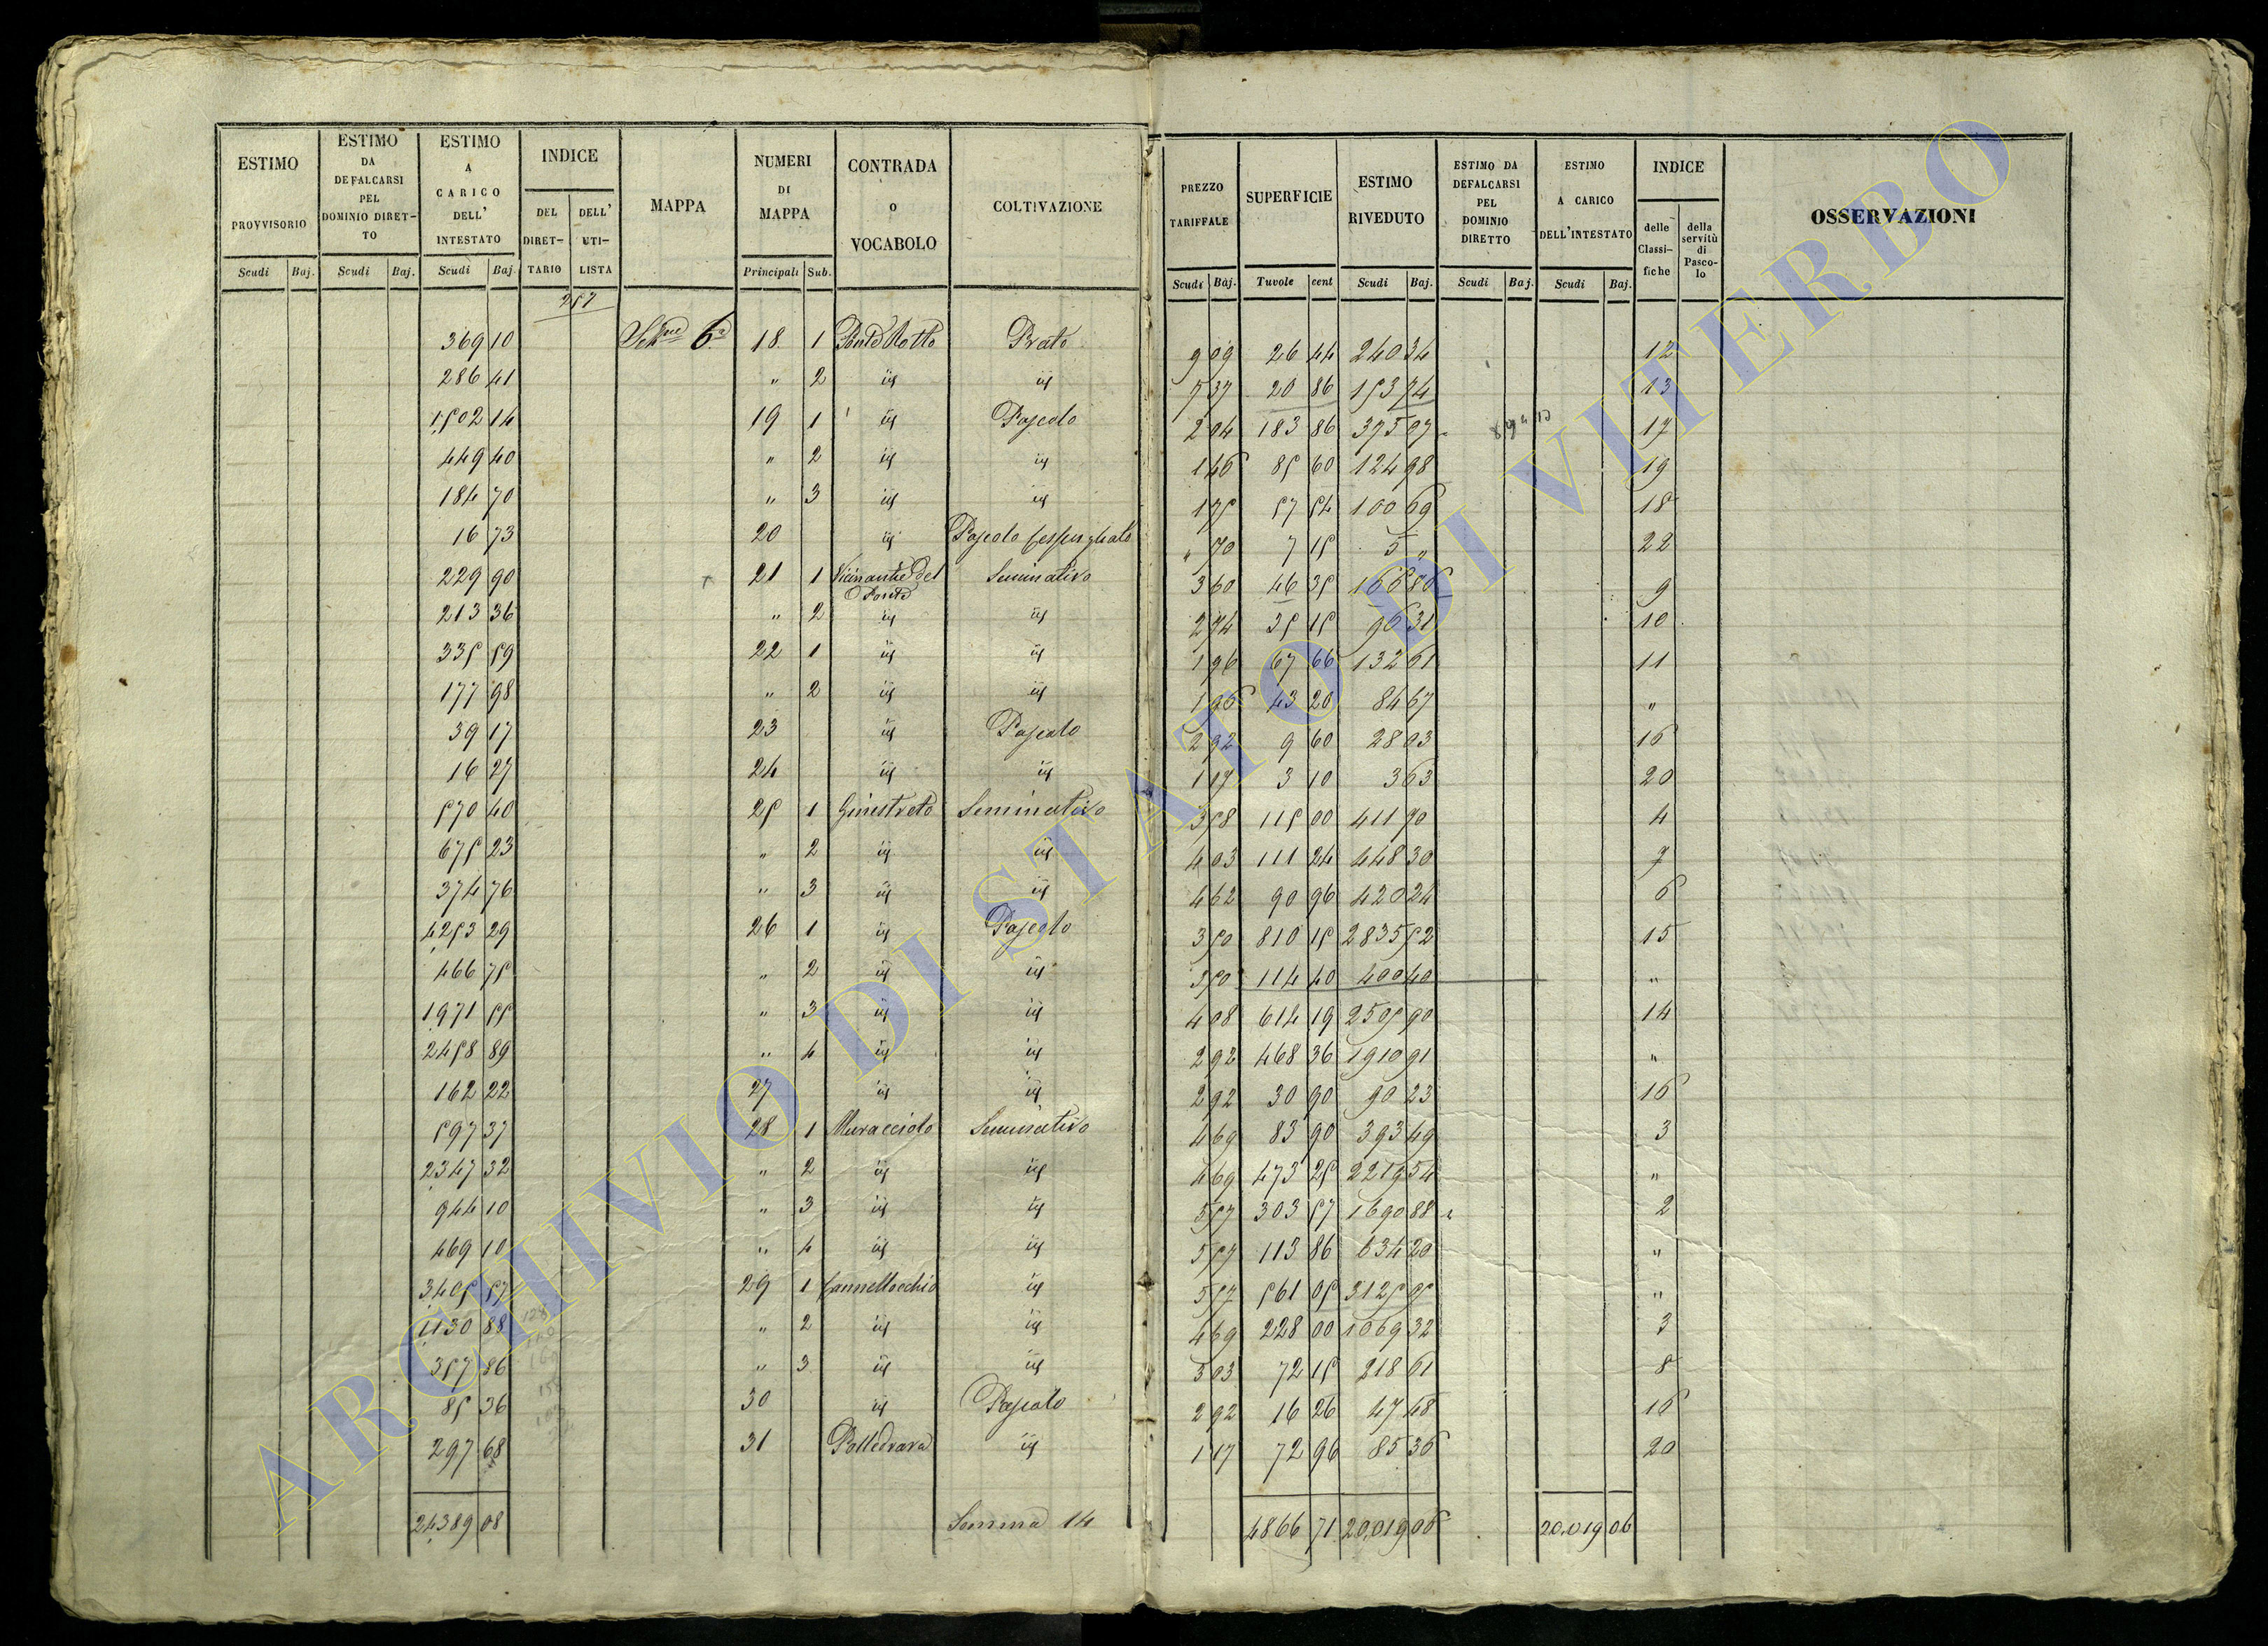 ESTIMO PROVVISORIO | ESTIMO DA DEFALCARSI PEL DOMINIO DIRET-TO | ESTIMO A CARICO DELL' INTESTATO | INDICE DEL DIRET-TARIO | DELL' UTI-LISTA | MAPPA | NUMERI DI MAPPA | CONTRADA o VOCABOLO | COLTIVAZIONE | PREZZO TARIFFALE | SUPERFICIE | ESTIMO RIVEDUTO | ESTIMO DA DEFALCARSI PEL DOMINIO DIRETTO | ESTIMO A CARICO DELL'INTESTATO | INDICE delle Classi-fiche | della servitù di Pasco-lo | OSSERVAZIONI
Scudi | Baj. | Scudi | Baj. | Scudi | Baj. | Principali | Sub. | Scudi | Baj. | Tuvole | cent | Scudi | Baj. | Scudi | Baj. | Scudi | Baj.
257
369 10 | 6a | 18 | 1 | Ponte Rotto | Prato | 9 09 | 26 44 | 240 34 | 12
286 41 | " | 2 | iÿ | iÿ | 7 37 | 20 86 | 153 74 | 13
1502 14 | 19 | 1 | iÿ | Pascolo | 2 04 | 183 86 | 375 07 | 17
449 40 | " | 2 | iÿ | iÿ | 1 46 | 85 60 | 124 98 | 19
184 70 | " | 3 | iÿ | iÿ | 1 75 | 57 54 | 100 69 | 18
16 73 | 20 | iÿ | Pascolo cespugliato | " 70 | 7 15 | 5 " | 22
229 90 | 21 | 1 | Vicinanze del Ponte | Seminativo | 3 60 | 46 35 | 166 86 | 9
213 36 | " | 2 | iÿ | iÿ | 2 74 | 35 15 | 96 31 | 10
335 59 | 22 | 1 | iÿ | iÿ | 1 96 | 67 66 | 132 61 | 11
177 98 | " | 2 | iÿ | iÿ | 1 96 | 43 20 | 84 67 | "
39 17 | 23 | iÿ | Pascolo | 2 92 | 9 60 | 28 03 | 16
16 27 | 24 | iÿ | iÿ | 1 17 | 3 10 | 3 63 | 20
570 40 | 25 | 1 | Ginestreto | Seminativo | 3 58 | 115 00 | 411 70 | 4
675 23 | " | 2 | iÿ | iÿ | 4 03 | 111 24 | 448 30 | 7
374 76 | " | 3 | iÿ | iÿ | 4 62 | 90 96 | 420 24 | 6
4253 29 | 26 | 1 | iÿ | Pascolo | 3 50 | 810 15 | 2835 52 | 15
466 75 | " | 2 | iÿ | iÿ | 3 50 | 114 40 | 400 40 | "
1971 55 | " | 3 | iÿ | iÿ | 4 08 | 614 19 | 2505 90 | 14
2458 89 | " | 4 | iÿ | iÿ | 2 92 | 468 36 | 1910 91 | "
162 22 | 27 | iÿ | iÿ | 2 92 | 30 90 | 90 23 | 16
597 37 | 28 | 1 | Muracciolo | Seminativo | 4 69 | 83 90 | 393 49 | 3
2347 32 | " | 2 | iÿ | iÿ | 4 69 | 473 25 | 2219 54 | "
944 10 | " | 3 | iÿ | iÿ | 5 57 | 303 57 | 1690 88 | 2
469 10 | " | 4 | iÿ | iÿ | 5 57 | 113 86 | 634 20 | "
3405 57 | 29 | 1 | Cannellocchio | iÿ | 5 57 | 561 05 | 3125 05 | "
1130 88 | " | 2 | iÿ | iÿ | 4 69 | 228 00 | 1069 32 | 3
357 86 | " | 3 | iÿ | iÿ | 3 03 | 72 15 | 218 61 | 8
85 36 | 30 | iÿ | Pascolo | 2 92 | 16 26 | 47 48 | 16
297 68 | 31 | Polledrara | iÿ | 1 17 | 72 96 | 85 36 | 20
24389 08 | Somma 14 | 4866 71 | 20,019 06 | 20,019 06
ARCHIVIO DI STATO DI VITERBO